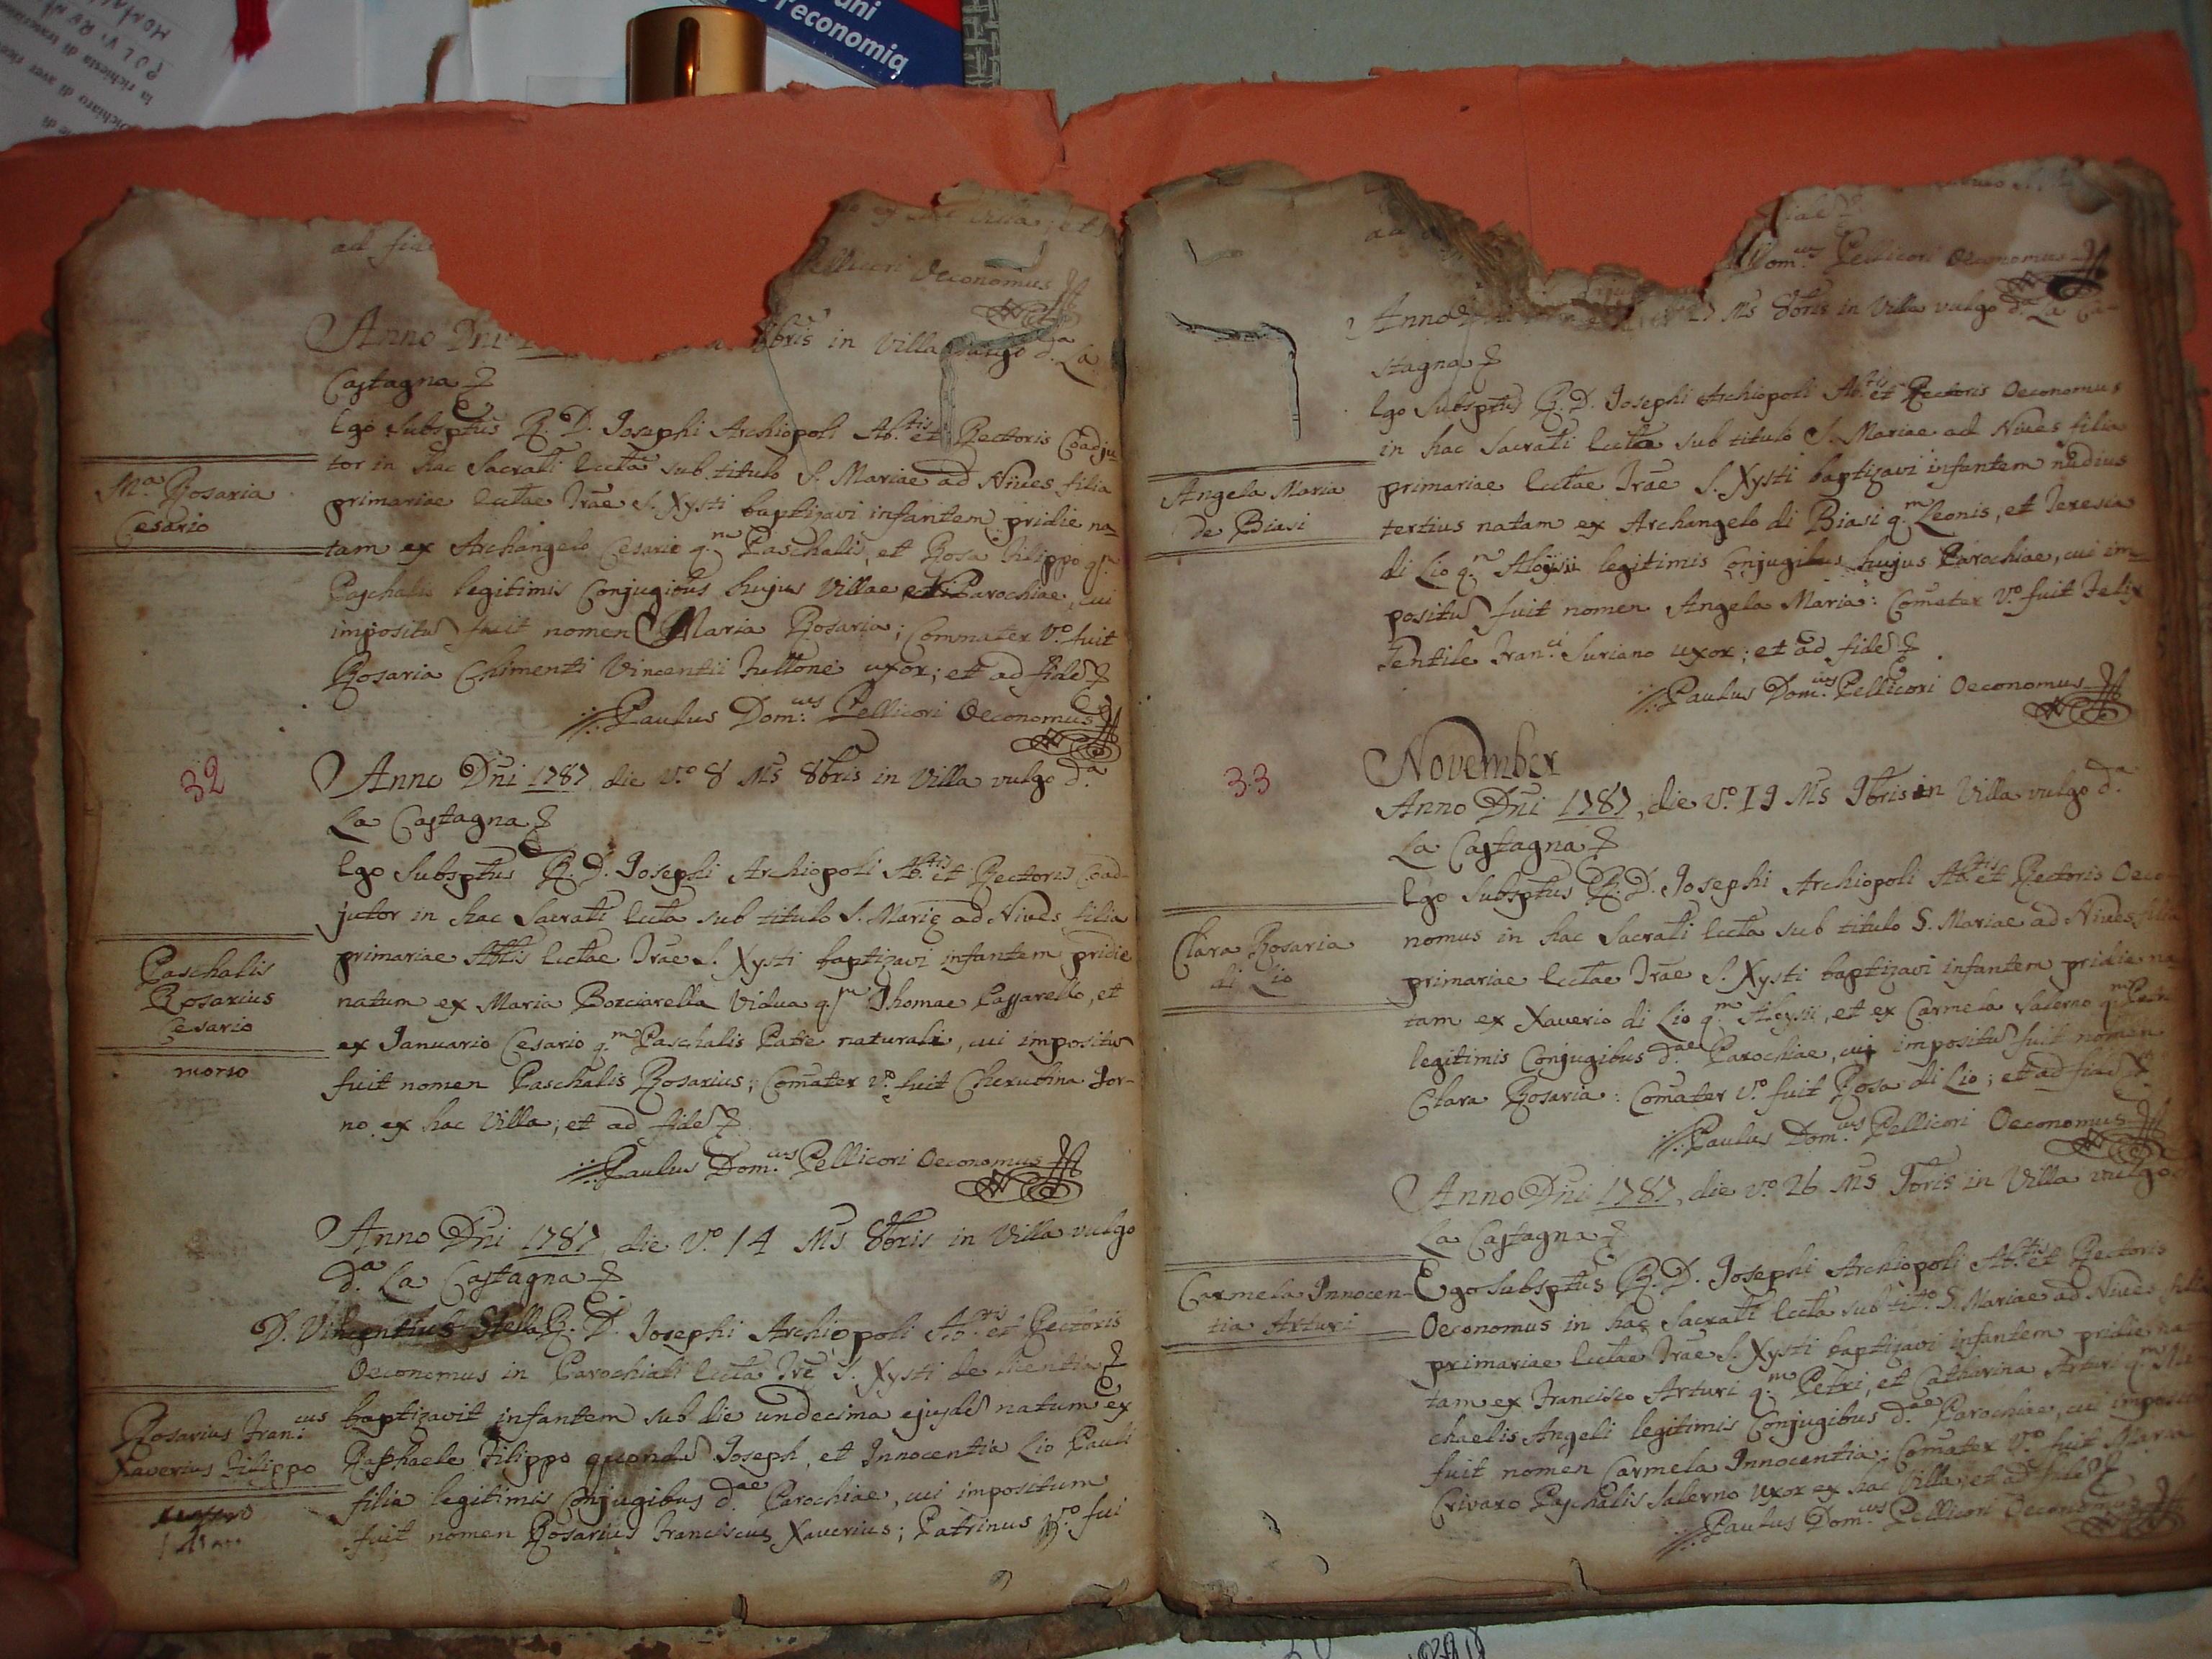 uni
l'economia
la richiesta di
ad fide
Villa; et
Pellicori Oeconomus
Anno Dñi
8bris in Villa vulgo d.ª La
Castagna
Ego Subsptus R. D. Josephi Archiopoli Ab.tis et Rectoris Coadju-
tor in hac Sacrati Eccta sub titulo S. Mariae ad Nives filia
primariae Ecctae Trae S. Xysti baptizavi infantem pridie na-
tam ex Archangelo Cesario q.m Paschalis, et Rosa Filippo q.m
Paschalis legitimis Conjugibus hujus Villae, et Parochiae, cui
impositu fuit nomen Maria Rosaria; Commater V.º fuit
Rosaria Chimenti Vincentii Tullone uxor; et ad fide
Paulus Dom.cus Pellicori Oeconomus
M.ª Rosaria
Cesario
32
Anno Dñi 1787, die V.º 8 Ms 8bris in Villa vulgo d.ª
La Castagna
Ego Subsptus R. D. Josephi Archiopoli Ab.tis et Rectoris Coad-
jutor in hac Sacrati Eccta sub titulo S. Marię ad Nives filia
primariae Abtis Ecctae Trae S. Xysti baptizavi infantem pridie
natum ex Maria Borciarella Vidua q.m Thomae Cassarello, et
ex Januario Cesario q.m Paschalis Patre naturali, cui impositu
fuit nomen Paschalis Rosarius; Comater V.º fuit Cherubina Jor-
no ex hac Villa; et ad fide
Paulus Dom.cus Pellicori Oeconomus
Paschalis
Rosarius
Cesario
morto
Anno Dñi 1787, die V.º 14 Ms 8bris in Villa vulgo
d.ª La Castagna
D. Vincentius Stella R. D. Josephi Archiopoli Ab.tis et Rectoris
Oeconomus in Parochiali Eccta Trę S. Xysti de licentia
baptizavit infantem sub die undecima ejusde natum ex
Raphaele Filippo quonda Joseph, et Innocentia Lio Pauli
filia legitimis Conjugibus d.ae Parochiae, cui impositum
fuit nomen Rosarius Franciscus Xaverius; Patrinus V.º fui
Rosarius Fran.cus
Xaverius Filippo
Dom.cus Pellicori Oeconomus
Anno
27 Ms 8bris in Villa vulgo d.ª La Ca-
stagna
Ego Subsptus R. D. Josephi Archiopoli Ab.tis et Rectoris Oeconomus
in hac Sacrati Eccta sub titulo S. Mariae ad Nives filia
primariae Ecctae Trae S. Xysti baptizavi infantem nudius
tertius natam ex Archangelo di Biasi q.m Leonis, et Teresia
di Lio q.m Aloysii legitimis Conjugibus hujus Parochiae, cui im-
positu fuit nomen Angela Maria: Comater V.º fuit Felix
Gentile Fran.ci Suriano uxor; et ad fide
Paulus Dom.cus Pellicori Oeconomus
Angela Maria
de Biasi
33
November
Anno Dñi 1787, die V.º 19 Ms 9bris in Villa vulgo d.ª
La Castagna
Ego Subsptus R. D. Josephi Archiopoli Ab.tis et Rectoris Oeco-
nomus in hac Sacrati Eccta sub titulo S. Mariae ad Nives, filia
primariae Ecctae Trae S. Xysti baptizavi infantem pridie na-
tam ex Xaverio di Lio q.m Aloysii, et ex Carmela Salerno q.m Petri
legitimis Conjugibus d.ae Parochiae, cui impositu fuit nomen
Clara Rosaria: Comater V.º fuit Rosa di Lio; et ad fide
Paulus Dom.cus Pellicori Oeconomus
Clara Rosaria
di Lio
Anno Dñi 1787, die V.º 26 Ms 9bris in Villa vulgo
La Castagna
Ego Subsptus R. D. Josephi Archiopoli Ab.tis et Rectoris
Oeconomus in hac Sacrati Eccta sub tit.º S. Mariae ad Nives filia
primariae Ecctae Trae S. Xysti baptizavi infantem pridie na-
tam ex Francisco Arturi q.m Petri, et Catharina Arturi q.m Mi-
chaelis Angeli legitimis Conjugibus d.ae Parochiae, cui impositu
fuit nomen Carmela Innocentia; Comater V.º fuit Maria
Crivaro Paschalis Salerno uxor ex hac Villa, et ad fide
Paulus Dom.cus Pellicori Oeconomus
Carmela Innocen-
tia Arturi